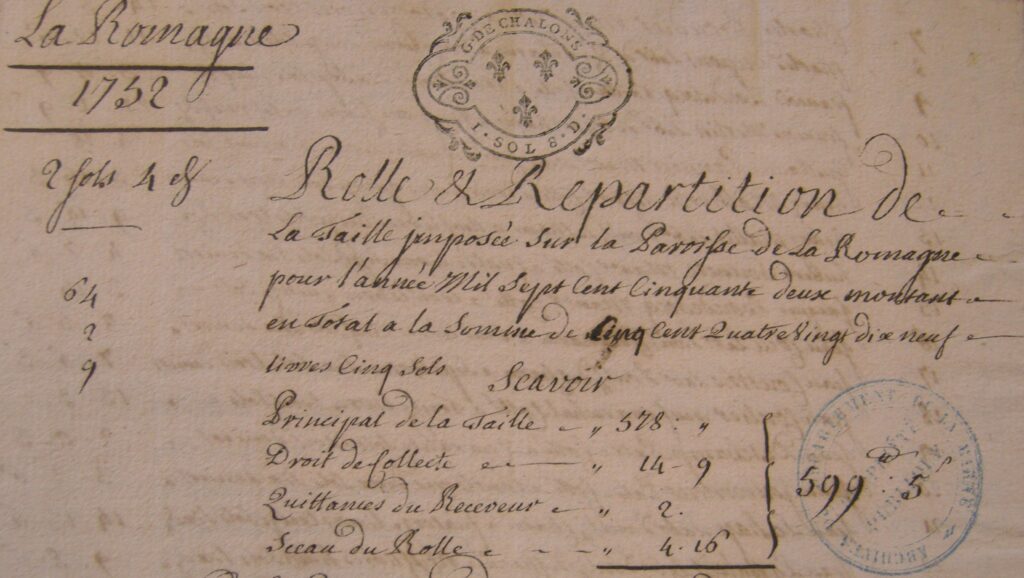 La Romagne
1752
G. DE CHALONS
1. SOL 8. D.
2 sols 4 d
64
2
9
Rolle & Repartition de
La Taille jmposée sur la Paroisse de La Romagne
pour l'année Mil Sept Cent Cinquante deux montant
en Total a la Somme de Cinq Cent Quatre Vingt dix neuf
livres Cinq Sols Scavoir
Principal de la Taille „ 578 : „
Droit de Collecte „ 14 - 9
Quittances du Receveur „ 2.
Sceau du Rolle „ 4. 16
599 5
DEPARTEMENT DE LA MARNE
ARCHIVES